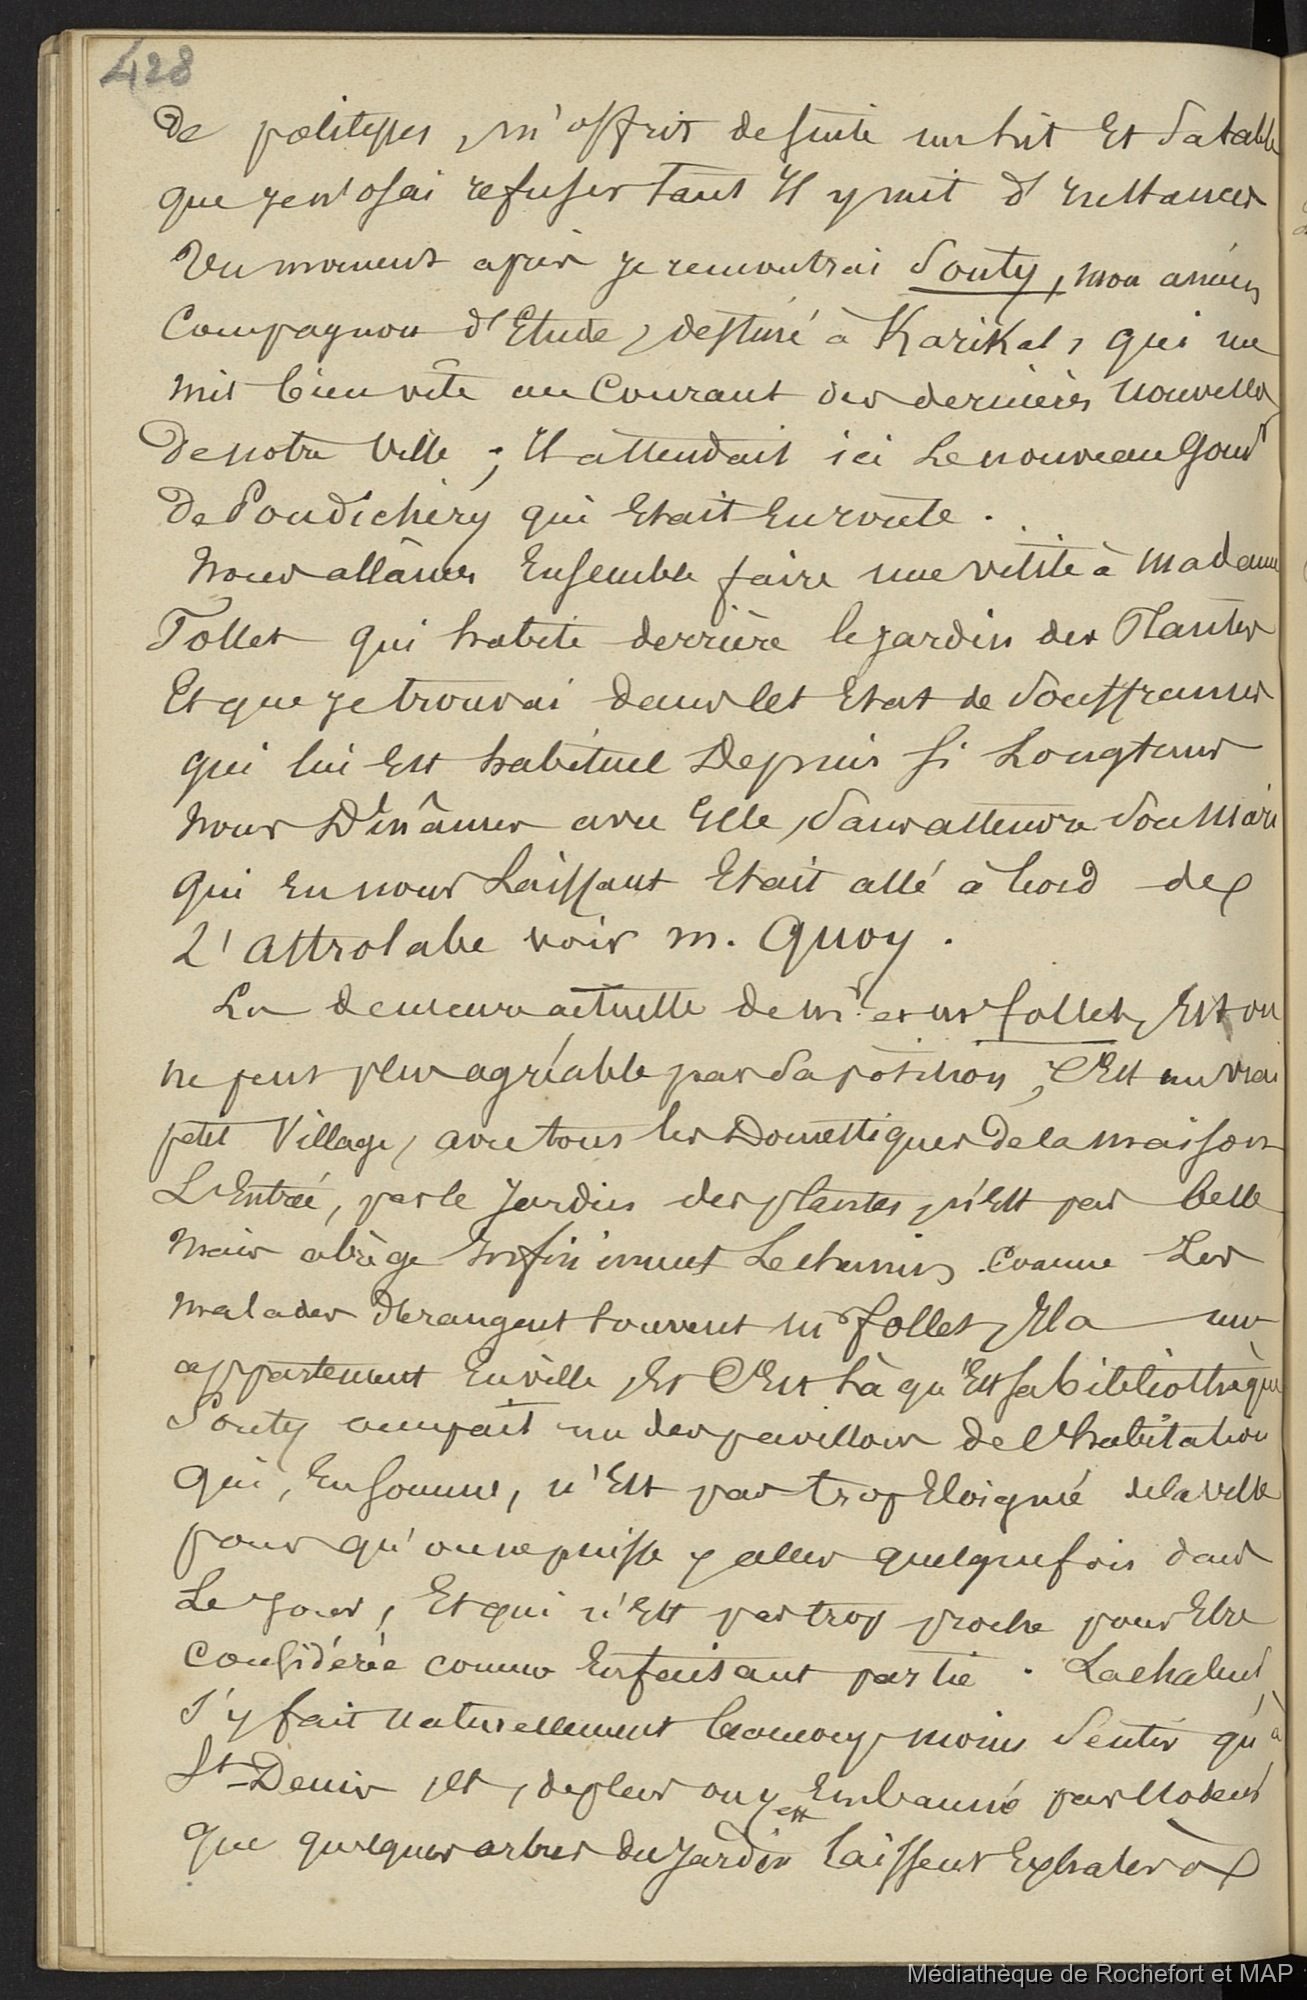 428
de politesses, m'offrit de suite un lit Et sa table
que je n'osai refuser tant Il y mit d'Instances
Un moment après je rencontrai Souty, mon ancien
Compagnon d'Etude, destiné à Karikal, qui me
mit bien vîte au Courant des dernières nouvelles
de notre Ville ; Il attendait ici Le nouveau Gouvr
de Pondichéry qui Etait En route.
Nous allâmes Ensemble faire une visite à Madame
Follet qui habite derrière le jardin des Plantes
Et que je trouvai dans cet Etat de Souffrances
qui lui Est habituel Depuis si Longtems
Nous Dinâmes avec Elle, sans attendre son Mari
qui En nous Laissant Etait allé à bord de
L'Astrolabe voir m. Quoy.
La demeure actuelle de mr et me follet, Est on
ne peut plus agréable par sa position, C'Est un vrai
petit Village, avec tous les Domestiques de la maison
L'Entrée, par le Jardin des plantes, n'Est pas belle
Mais abrège Infiniment Le chemin. Comme Les
malades dérangent souvent mr follet, Il a un
appartement En ville, Et C'Est là qu'Est sa bibliothèque
Souty occupait un des pavillons de l'habitation
Qui, En somme, n'Est pas trop Eloigné de la Ville
pour qu'on ne puisse y aller quelquefois dans
Le Jour, Et qui n'Est pas trop proche pour Etre
Considérée comme En faisant partie. La chaleur
s'y fait naturellement beaucoup moins sentir qu'à
St-Denis, Et, de plus on y est Embaumé par l'odeur
que quelques arbres du Jardin laissent Exhaler
Médiathèque de Rochefort et MAP